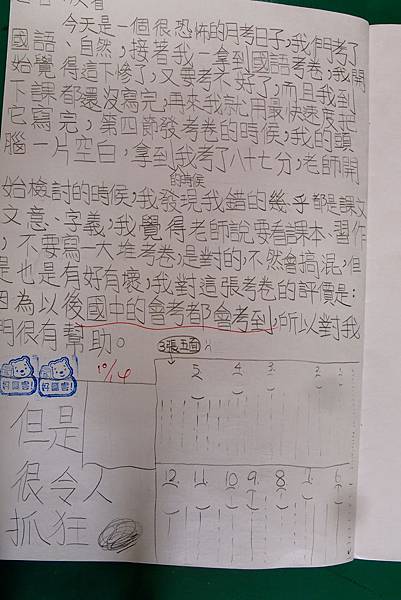 今天是一個很恐怖的月考日子，我們考了
國語、自然，接著我一拿到國語考卷，我開
始覺得這下慘了，又要考不好了，而且我到
下課都還沒寫完，再來我就用最快速度把
它寫完，第四節發考卷的時候，我的頭
腦一片空白，拿到我考了八十七分，老師開
的時候
始檢討的時候，我發現我錯的幾乎都是課文
文意、字義，我覺得老師說要看課本、習作
，不要寫一大堆考卷，是對的，不然會搞混，但
是也是有好有壞，我對這張考卷的評價是：
因為以後國中的會考都會考到，所以對我
們很有幫助。
3張五面
10/14
5. 4. 3. 2. 1.
但是
很令人
抓狂
12. 11. 10. 9. 8. 7. 6.